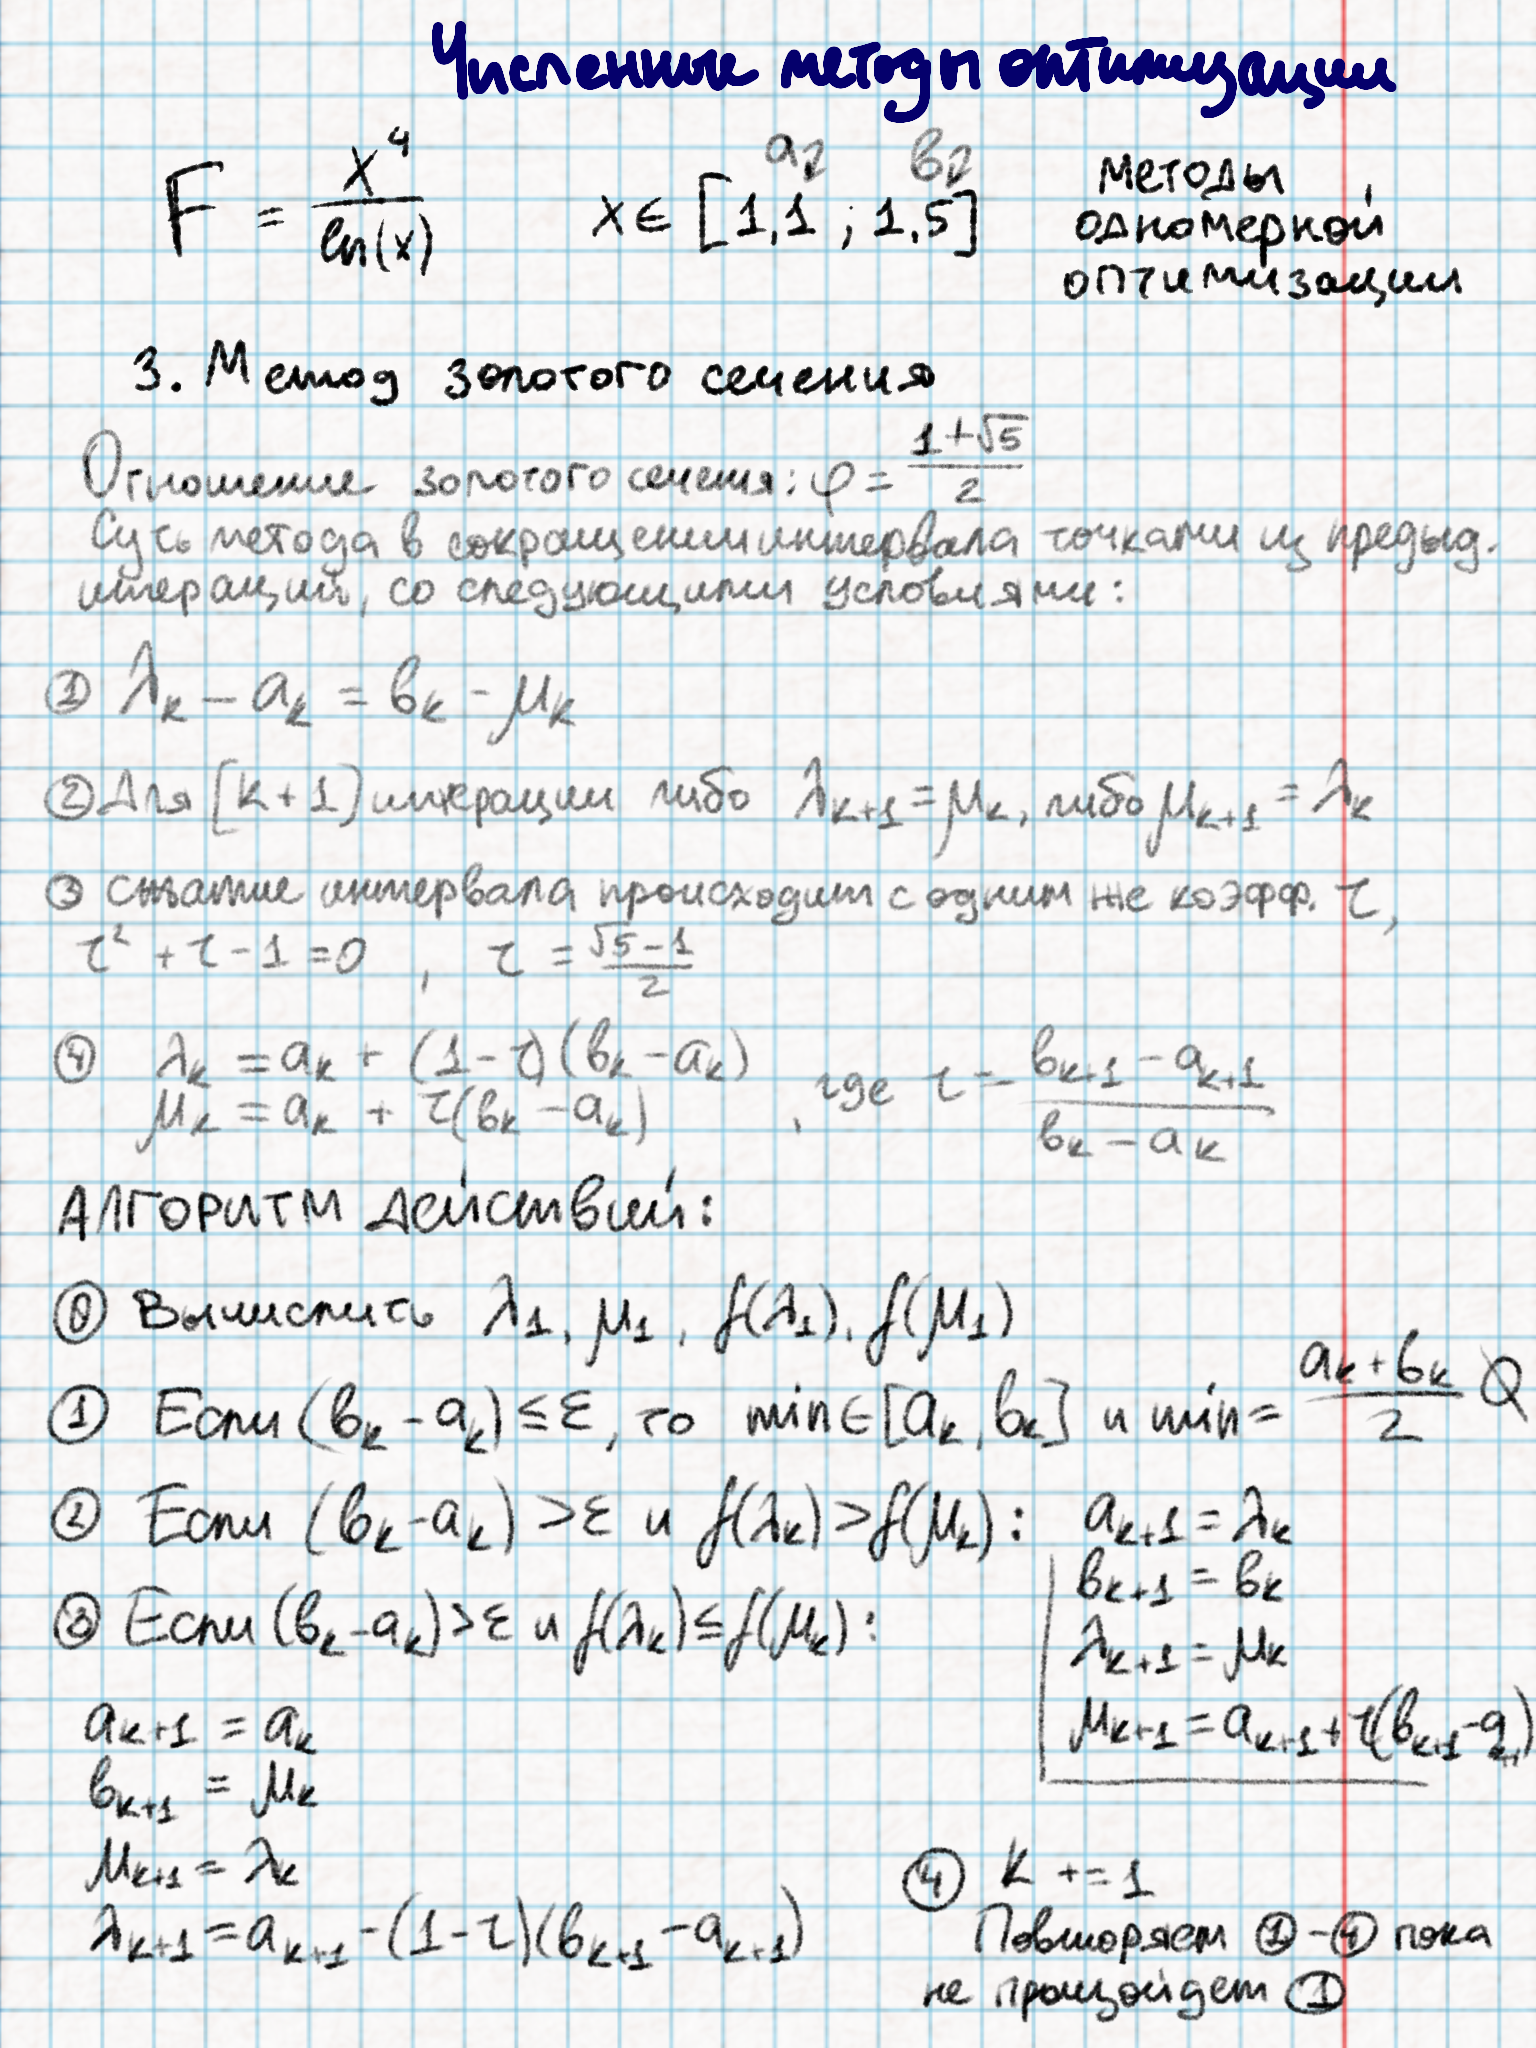 Численные методы оптимизации
F = x⁴/ln(x)    x ∈ [1,1 ; 1,5]
методы
одномерной
оптимизации
3. Метод золотого сечения
Отношение золотого сечения: φ = (1+√5)/2
Суть метода в сокращении интервала точками из предыд.
итераций, со следующими условиями:
① λₖ − aₖ = вₖ − μₖ
② Для [k+1] итерации либо λₖ₊₁ = μₖ, либо μₖ₊₁ = λₖ
③ сжатие интервала происходит с одним же коэфф. τ,
τ² + τ − 1 = 0 , τ = (√5−1)/2
④ λₖ = aₖ + (1−τ)(вₖ − aₖ)
μₖ = aₖ + τ(вₖ − aₖ) , где τ = (вₖ₊₁ − aₖ₊₁)/(вₖ − aₖ)
Алгоритм действий:
⓪ Вычислить λ₁, μ₁, f(λ₁), f(μ₁)
① Если (вₖ − aₖ) ≤ ε, то min ∈ [aₖ, вₖ] и min = (aₖ + вₖ)/2
② Если (вₖ − aₖ) > ε и f(λₖ) > f(μₖ):
aₖ₊₁ = λₖ
вₖ₊₁ = вₖ
λₖ₊₁ = μₖ
μₖ₊₁ = aₖ₊₁ + τ(вₖ₊₁ − aₖ₊₁)
③ Если (вₖ − aₖ) > ε и f(λₖ) ≤ f(μₖ):
aₖ₊₁ = aₖ
вₖ₊₁ = μₖ
μₖ₊₁ = λₖ
λₖ₊₁ = aₖ₊₁ − (1−τ)(вₖ₊₁ − aₖ₊₁)
④ k += 1
Повторяем ①−④ пока
не произойдет ①